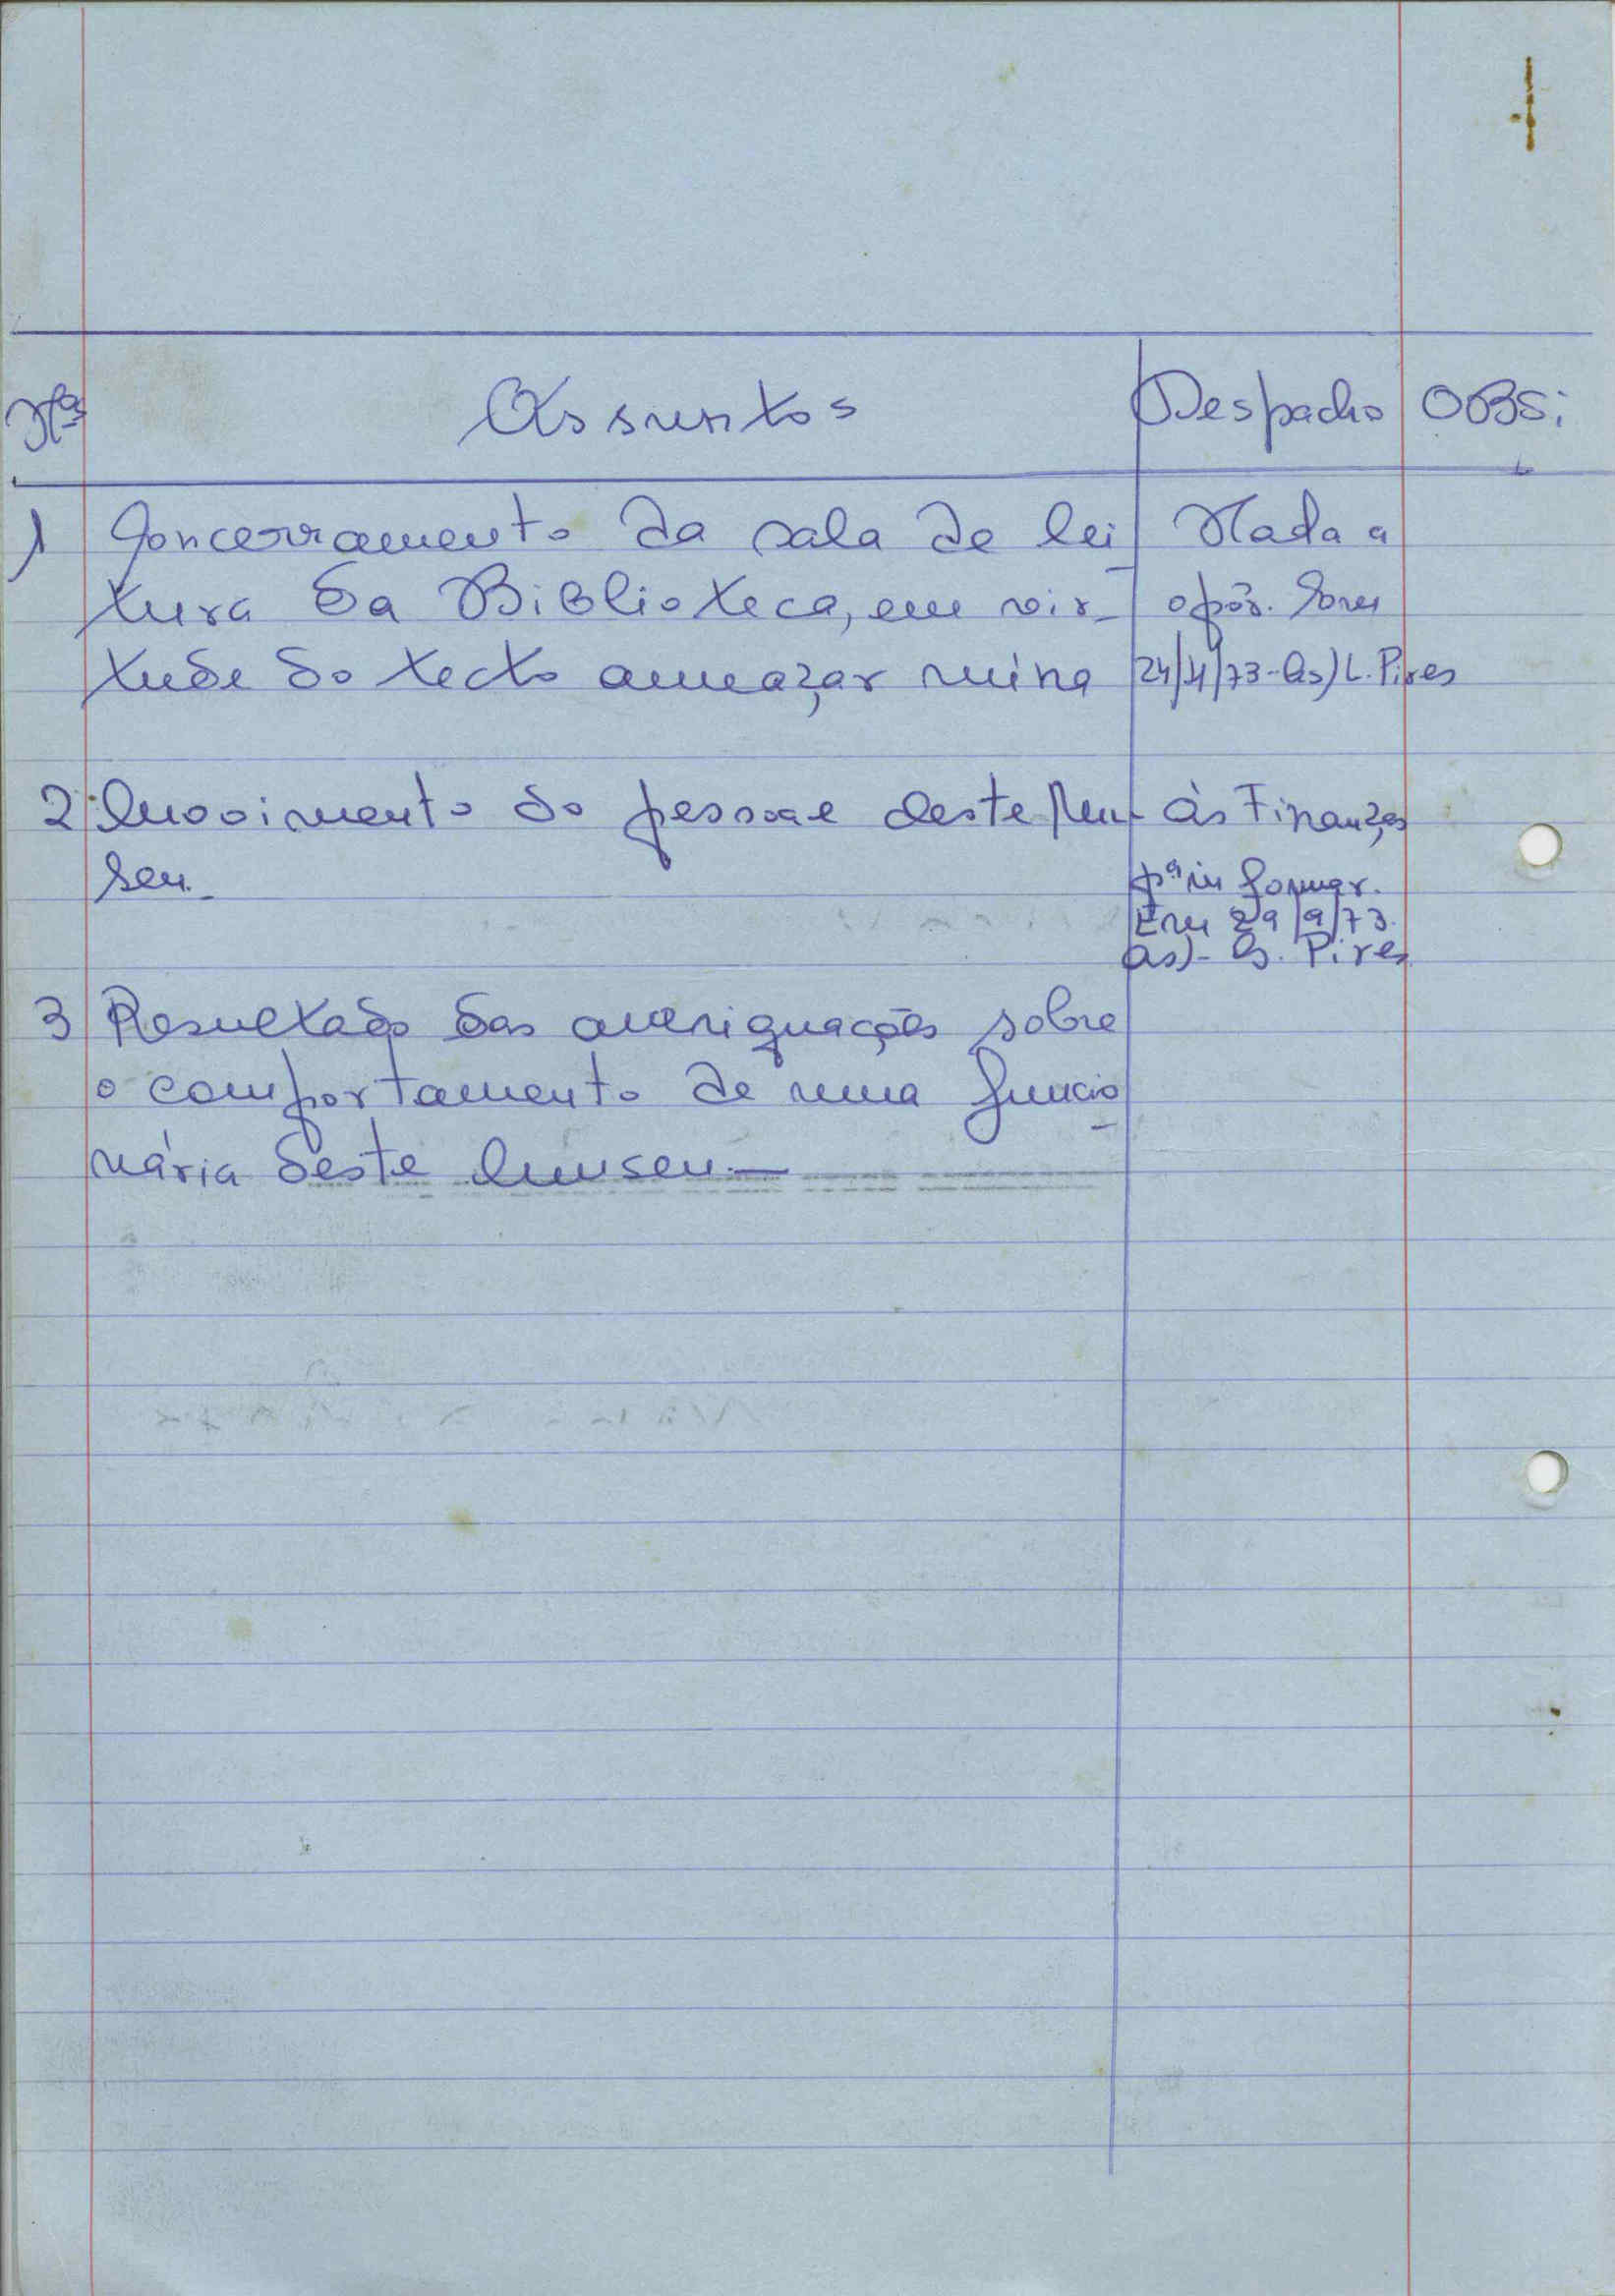 Nºs Assuntos Despacho OBS:
1 Concerramento da sala de lei- Nada a
tura da Biblioteca, em vir- opôr. Em
tude do tecto ameaçar ruina 24/4/73-as) L. Pires
2 Movimento do pessoal deste Mu- às Finanças
seu. pª informar.
Em 29/9/73.
as)- L. Pires
3 Resultado das averiguações sobre
o comportamento de uma funcio-
nária deste Museu.—